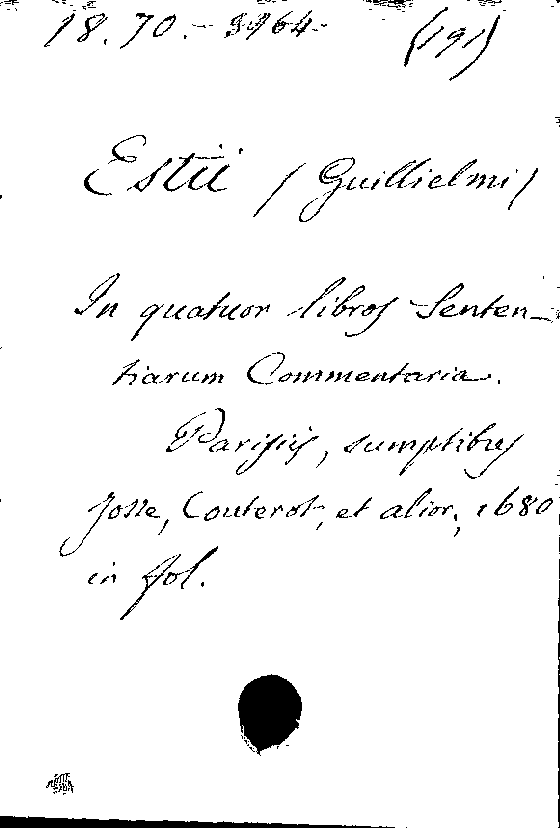 18.70.- 3964. (191)
Estii (Guillielmi)
In quatuor libros Senten-
tiarum Commentaria.
Parisiis, sumptibus
Josse, Couterot, et alior., 1680
in fol.